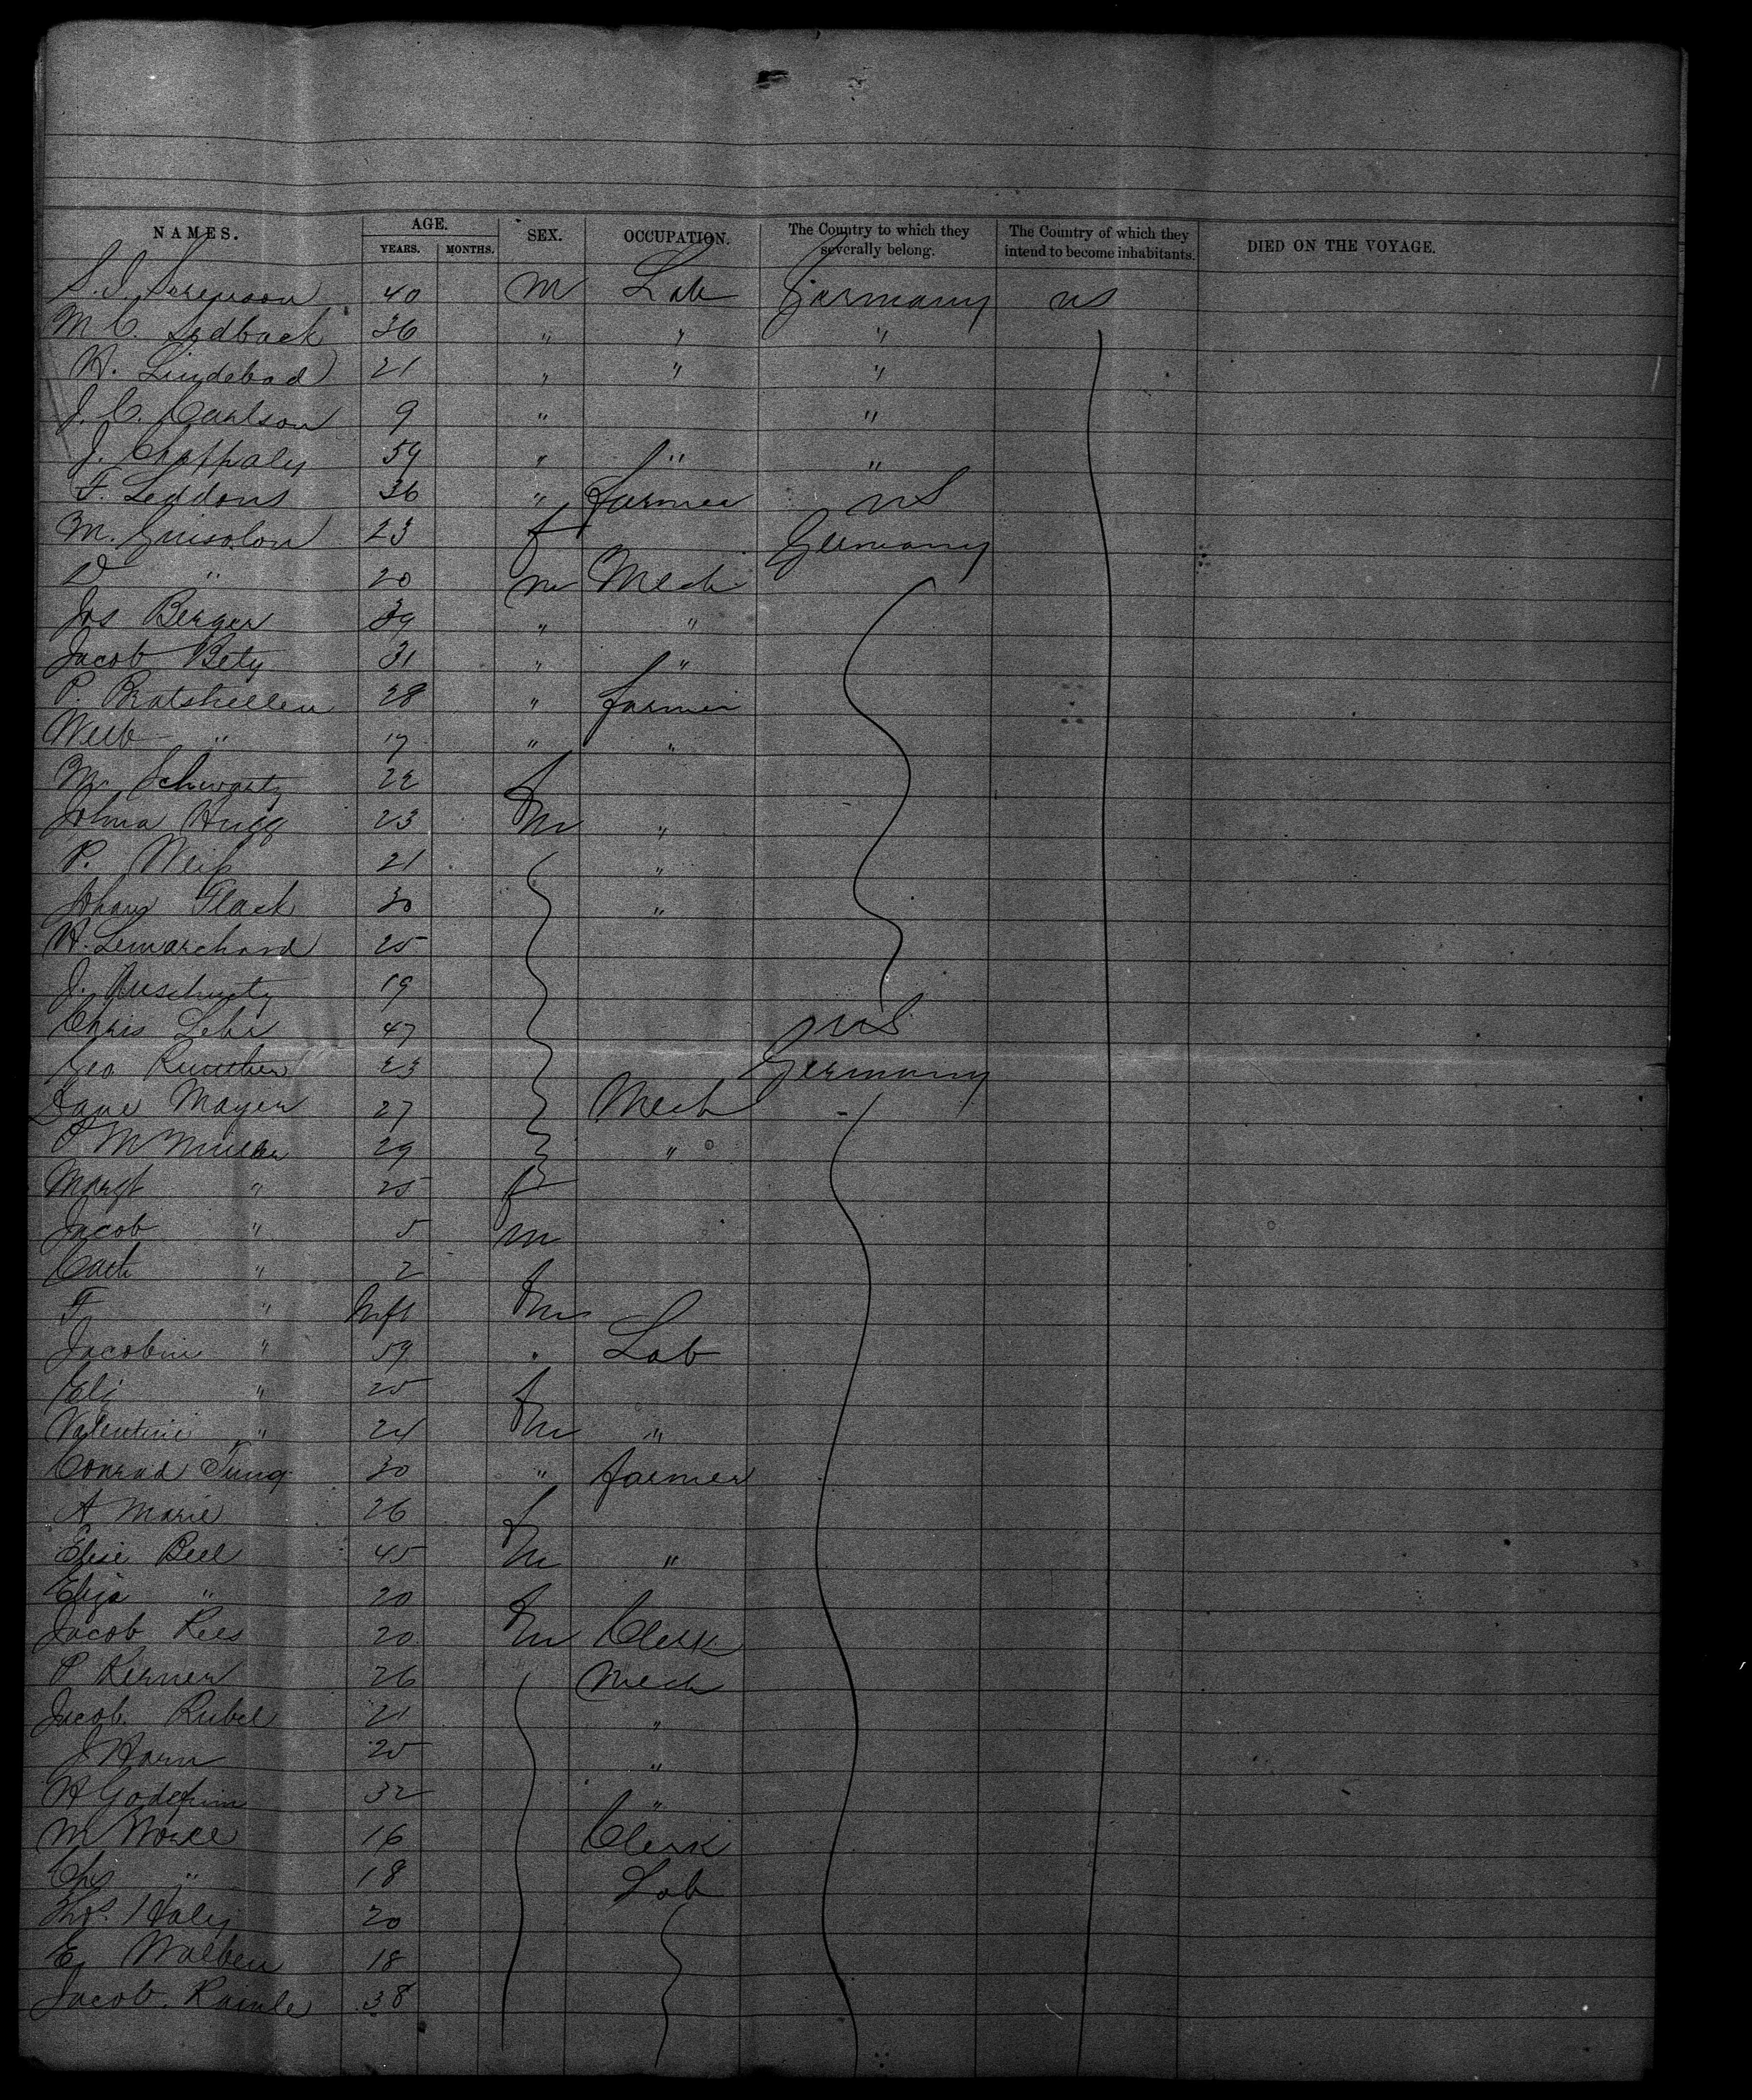 NAMES. AGE. SEX. OCCUPATION. The Country to which they severally belong. The Country of which they intend to become inhabitants. DIED ON THE VOYAGE.
YEARS. MONTHS.
S. J. 40 m Lab Germany us
M C. Sedback 36 " " "
H. Lindebad 21 " " "
J. C. Carlson 9 " "
J. Chaffaly 54 " " "
F. Seddons 36 " farmer US
M. 23 f Germany
D " 20 m Mech
Jos Berger 39 " "
Jacob Bety 31 " "
P. Bratshellen 28 " farmer
" 17 " "
M. Schwartz 22 f
Johna Hugg 23 m "
P. Weiß 21 "
Flach 30 "
H. Lemarchand 25
J. 19
Chris Lehr 47 US
Geo 23 Germany
Mayer 27 Mech
P M Muller 29 "
Margt " 25 f
Jacob " 5 m
Cath " 2 f
F " Inft m
Jacobin " 59 " Lab
Eliz " 25 f
Valentine " 24 m "
Conrad Jung 30 " farmer
A Marie 26 f
Elise Beel 45 m "
Eliza " 20 f
Jacob Rees 20 m Clerk
P Kerner 26 Mech
Jacob Rubel 21 "
J Horn 25 "
H 32 "
M 16 Clerk
Chs " 18 Lab
Thos. Haly 20
E Walben 18
Jacob. 38